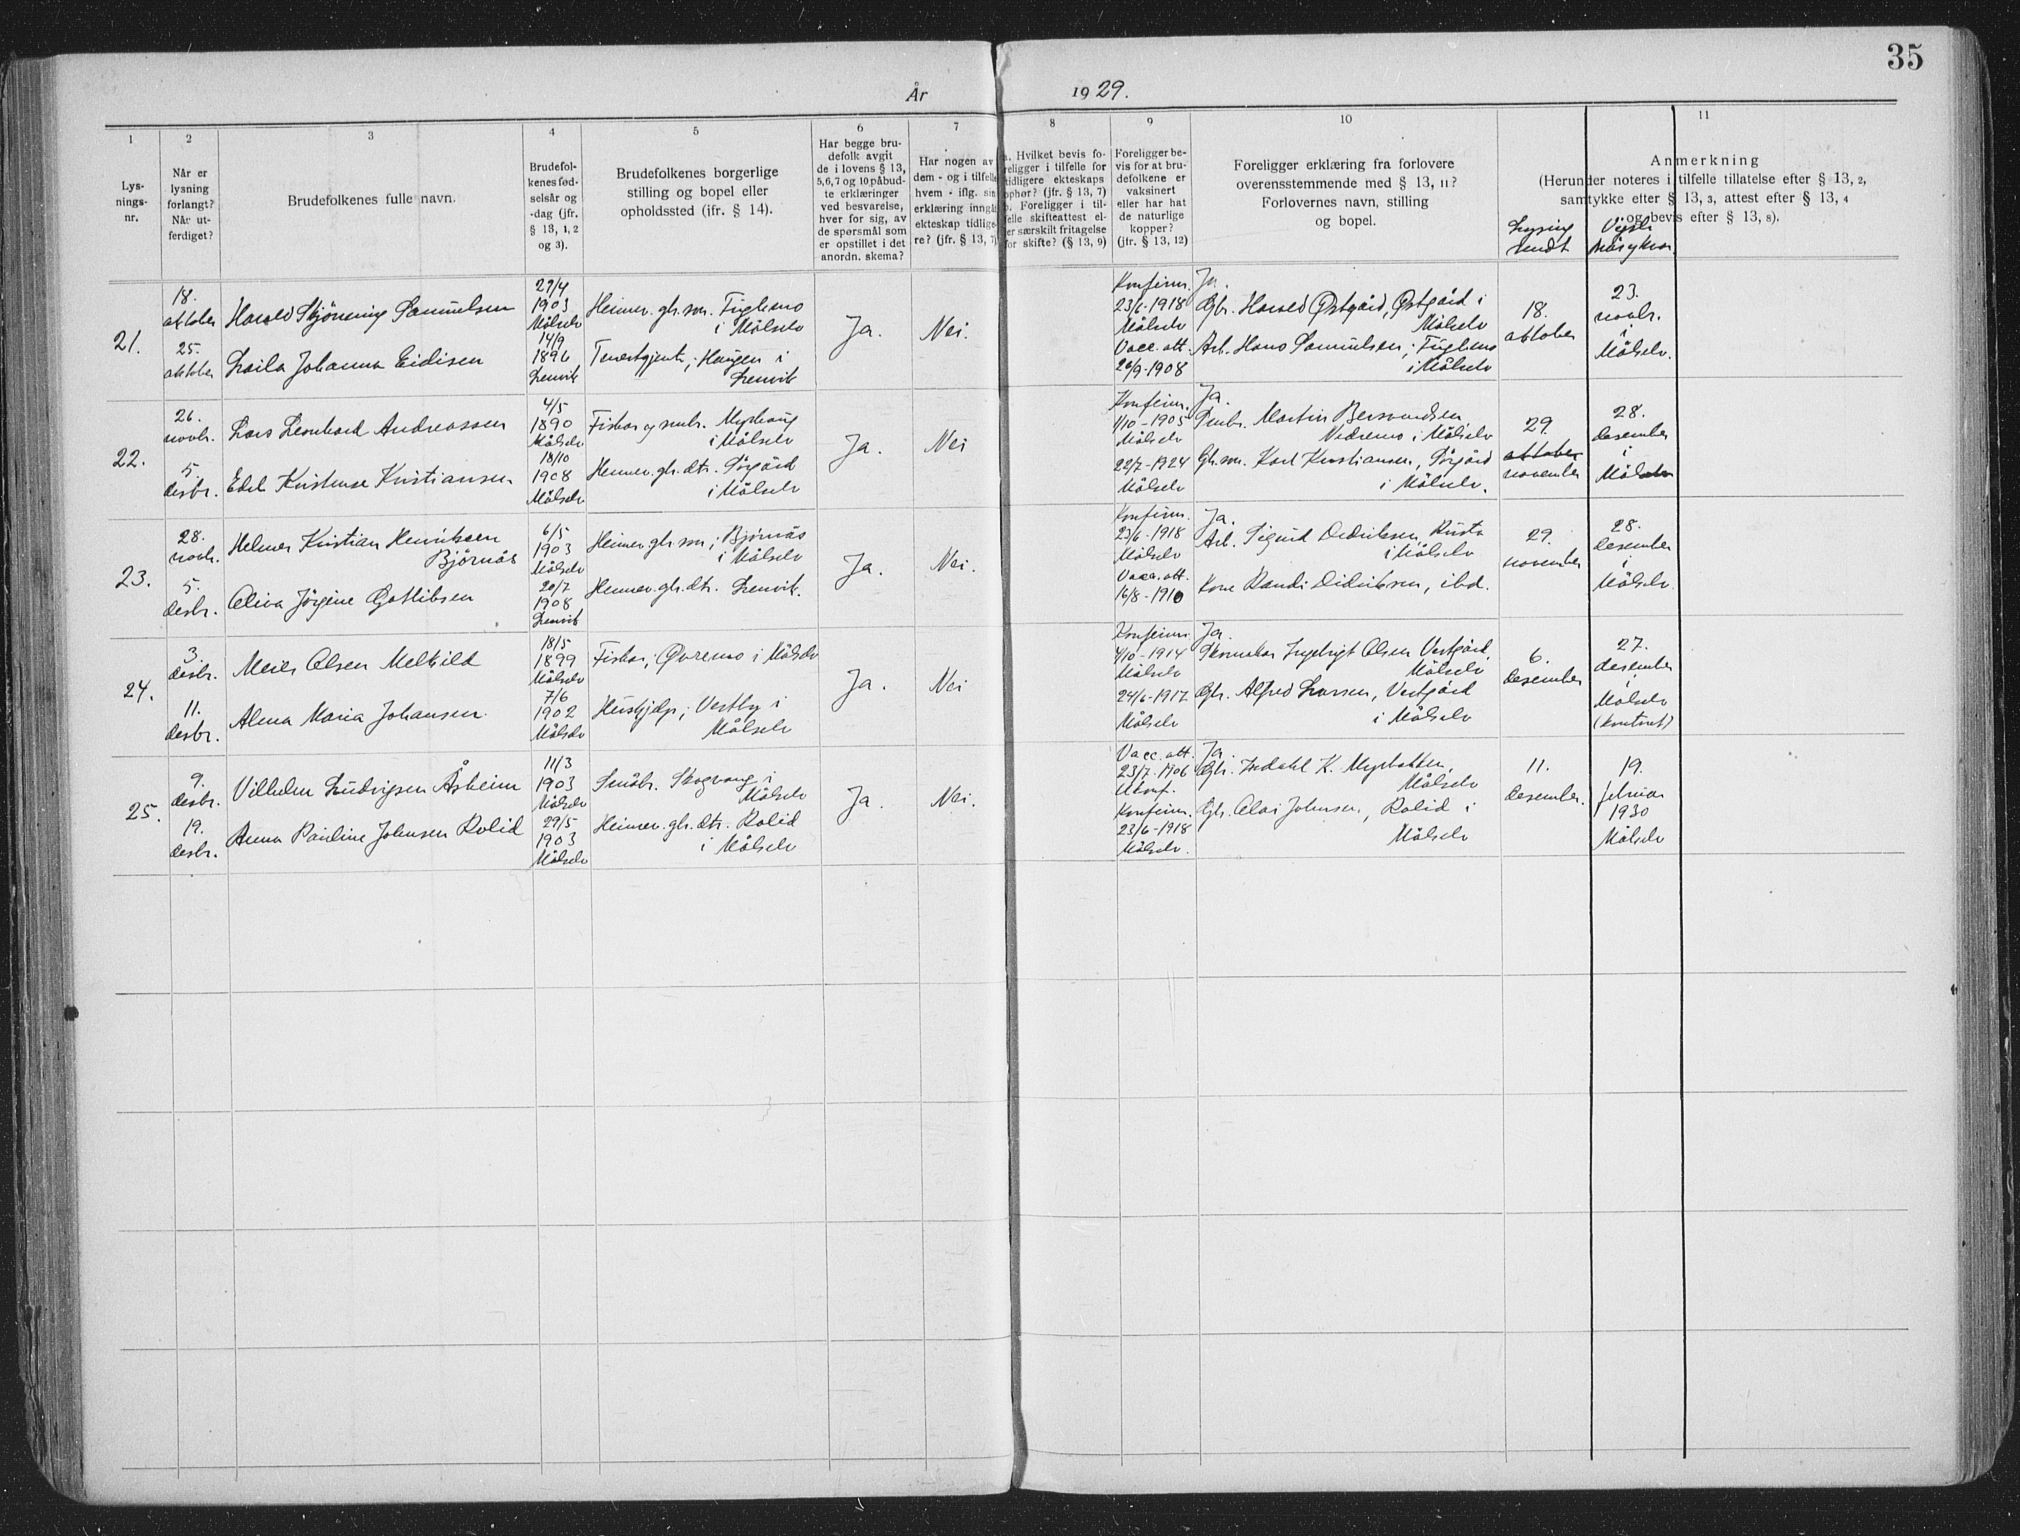 35
År 1929.
1 2 3 4 5 6 7 8 9 10 11
Lysningsnr.
Når er lysning forlangt? Når utferdiget?
Brudefolkenes fulle navn.
Brudefolkenes fødselsår og -dag (jfr. § 13, 1, 2 og 3).
Brudefolkenes borgerlige stilling og bopel eller opholdssted (ifr. § 14).
Har begge brudefolk avgit de i lovens § 13, 5, 6, 7 og 10 påbudte erklæringer ved besvarelse, hver for sig, av de spørsmål som er opstillet i det anordn. skema?
Har nogen av dem - og i tilfelle hvem - iflg. sin erklæring inngåt ekteskap tidligere? (jfr. § 13, 7)
a. Hvilket bevis foreligger i tilfelle for tidligere ekteskaps ophør? (jfr. § 13, 7) b. Foreligger i tilfelle skifteattest eller særskilt fritagelse for skifte? (§ 13, 9)
Foreligger bevis for at brudefolkene er vaksinert eller har hat de naturlige kopper? (jfr. § 13, 12)
Foreligger erklæring fra forlovere overensstemmende med § 13, 11? Forlovernes navn, stilling og bopel.
Anmerkning
(Herunder noteres i tilfelle tillatelse efter § 13, 2, samtykke etter § 13, 3, attest efter § 13, 4 og bevis efter § 13, 8).
Lysning sendt
21.
18. oktober
25. oktober
Harald Skjønning Samuelsen
Laila Johanna Eidisen
29/4 1903 Målselv
14/9 1896 Lenvik
Heimev. gb. søn. Fuglemo i Målselv
Tenestjente, Haugen i Lenvik
Ja.
Nei.
Konfirm. 23/6-1918 Målselv
Vacc. att. 20/9-1908
Ja.
Gbr. Harald Østgård, Østgård i Målselv
Arb. Hans Samuelsen, Fuglemo i Målselv
18. oktober
23. novbr. i Målselv.
22.
26. novbr.
5. desbr.
Lars Leonhard Andreassen
Edel Kristense Kristiansen
4/5 1890 Målselv
18/10 1908 Målselv
Fisker og småbr. Myrhaug i Målselv
Heimev. gb. dtr. Sørgård i Målselv
Ja.
Nei
Konfirm. 1/10-1905 Målselv
22/7-1924 Målselv
Ja.
Småbr. Martin Bersvendsen Nedremo i Målselv
Gb. søn. Karl Kristiansen, Sørgård i Målselv.
29. oktober november
28. desember i Målselv
23.
28. novbr.
5. desbr.
Helmer Kristian Henriksen Bjørnås
Oliva Jørgine Gotlibsen
6/5 1903 Målselv
20/7 1908 Lenvik
Heimev. gb. søn, Bjørnås i Målselv
Heimev. gb. dtr. Lenvik.
Ja.
Nei.
Konfirm. 23/6-1918 Målselv
Vacc. att. 16/8-1910
Ja.
Arb. Sigurd Didriksen, Rusta i Målselv
Kone Randi Didriksen, ibd.
29. november
28. desember i Målselv.
24.
3. desbr.
11. desbr.
Meier Olsen Melkild
Alma Maria Johansen
18/5 1899 Målselv
7/6 1902 Målselv
Fisker, Øvremo i Målselv
Huskjelp, Vestby i Målselv
Ja.
Nei
Konfirm. 4/10-1914 Målselv
24/6-1917 Målselv
Ja.
Skomaker Ingebrigt Olsen Vestgård, Målselv
Gbr. Alfred Larsen, Vestgård i Målselv
6. desember
27. desember i Målselv (kontoret)
25.
9. desbr.
19. desbr.
Vilhelm Ludvigsen Åsheim
Anna Pauline Johnsen Rolid
11/3 1903 Målselv
29/5 1903 Målselv
Småbr. Skogvang i Målselv
Heimev. gb. dtr. Rolid i Målselv
Ja.
Nei.
Vacc. att. 23/7-1906
Konfirm. 23/6-1918 Målselv.
Ja.
Gbr. Indahl K. Myrbakken, Målselv
Gbr. Olai Johnsen, Rolid i Målselv
11. desember.
19. februar 1930 Målselv